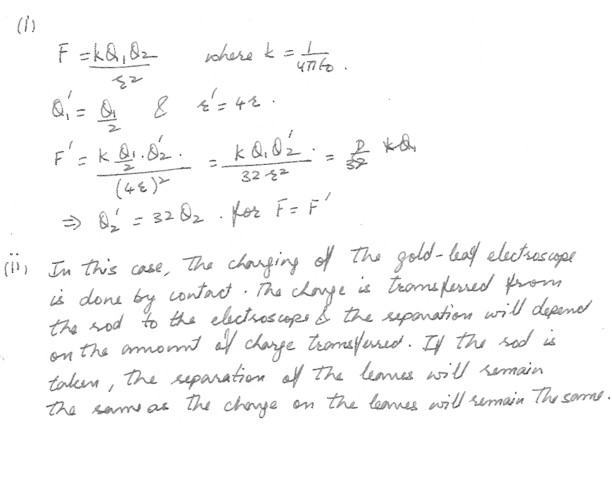 (i)
F = kQ₁Q₂ / r² where k = 1 / 4πε₀ .
Q₁' = Q₁ / 2 & r' = 4r .
F' = k Q₁/2 . Q₂' . / (4r)² = k Q₁Q₂' . / 32 r² =
⇒ Q₂' = 32 Q₂ . for F = F'
(ii) In this case, The charging of The gold-leaf electroscope
is done by contact . The charge is transferred from
the rod to the electroscope & the separation will depend
on the amount of charge transferred. If the rod is
taken , the separation of The leaves will remain
the same as the charge on the leaves will remain The same .